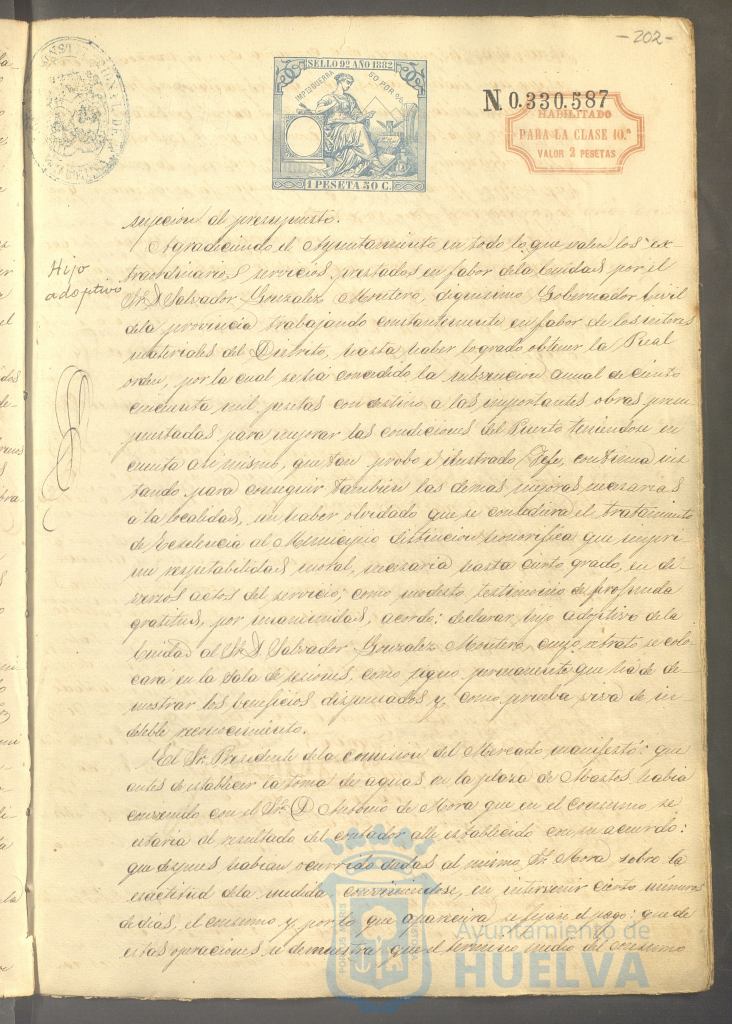 -202-
SELLO 9º AÑO 1882
IMPTO GUERRA 50 POR %
1 PESETA 50 C.
N 0.330.587
HABILITADO
PARA LA CLASE 10.ª
VALOR 2 PESETAS
sujecion al presupuesto.
Hijo
adoptivo
Agradeciendo el Ayuntamiento en todo lo que valen los ex-
traordinarios servicios, prestados en fabor dela Ciudad por el
Sr. D. Salvador Gonzalez Montero, dignisimo Gobernador Civil
dela provincia trabajando constantemente en fabor de los intereses
materiales del Distrito, hasta haber logrado obtener la Real
orden, por la cual se há concedido la subvencion anual de ciento
cincuenta mil pesetas con destino a las importantes obras presu
puestadas para mejorar las condiciones del Puerto teniendose en
cuenta asi mismo, que tan probo é ilustrado Jefe, continua ins
tando para conseguir tambien las demas mejoras necesarias
a la localidad, sin haber olvidado que se concediera el tratamiento
de Excelencia al Municipio distincion honorifica que impri
me respetabilidad moral, necesaria hasta cierto grado, en di-
versos actos del servicio; como modesto testimonio de profunda
gratitud, por unanimidad, acordó: declarar hijo adoptivo de la
Ciudad al Sr. D. Salvador Gonzalez Montero, cuyo retrato se colo
cara en la Sala de sesiones, como signo permanente que há de de
mostrar los beneficios dispensados y como prueba sera de in
deleble reconocimiento.
El Sr. Presidente dela comision del Mercado manifestó: que
antes de establecer la toma de aguas en la plaza de Abastos habia
convenido con el Sr. D Antonio de Mora que en el consumo se
estaria al resultado del contador alli establecido con su acuerdo:
que despues habian ocurrido dudas al mismo Sr. Mora sobre la
exactitud dela medida conviniendose, en intervenir cierto número
de dias, el consumo y por lo que apareciera se fijase el pago: que de
estas operaciones se demuestra que el termino medio del consumo
Ayuntamiento de
HUELVA